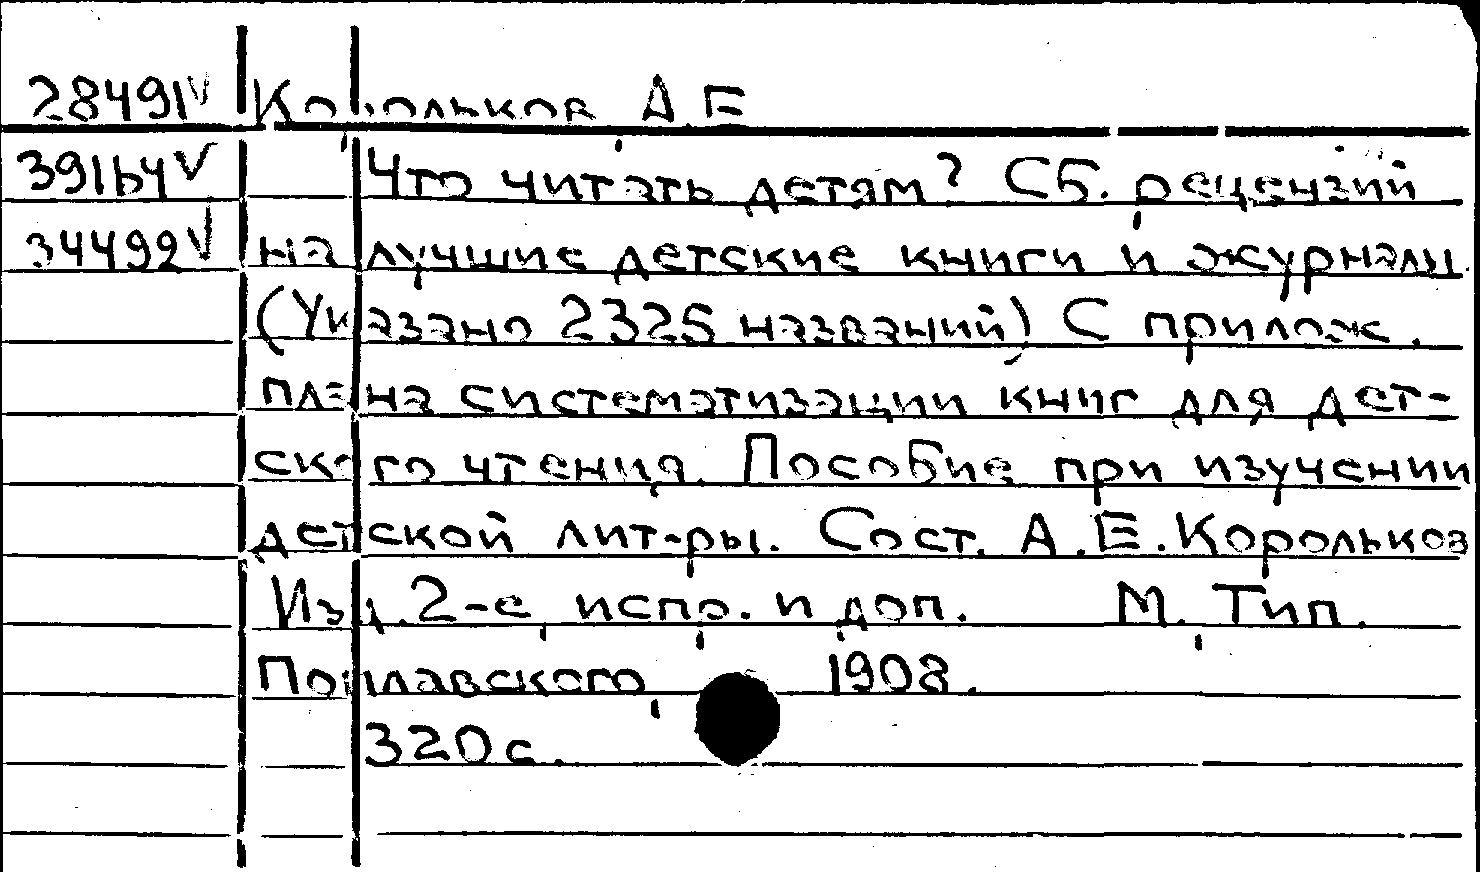 28491V Корольков А.Е.
39164V Что читать детям? Сб. рецензий
34492V на лучшие детские книги и журналы.
(Указано 2325 названий) С прилож.
плана систематизации книг для дет-
ского чтения. Пособие при изучении
детской лит-ры. Сост. А.Е.Корольков
Изд.2-е, испр. и доп. М. Тип.
Поплавского, 1908.
320с.